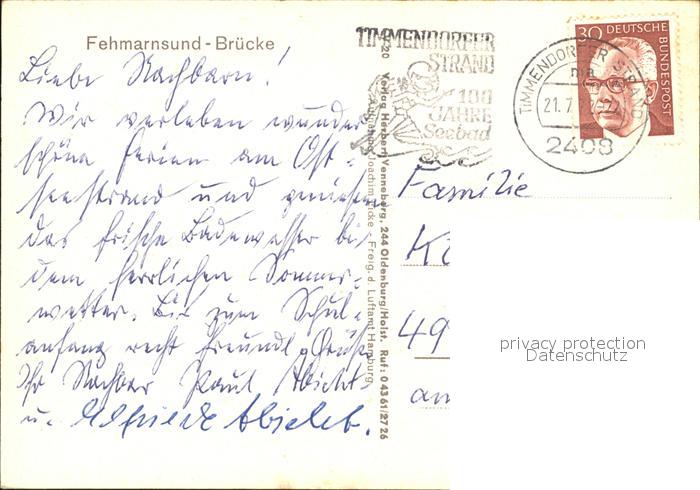 Fehmarnsund - Brücke
Liebe Nachbarn!
Wir verleben wunder-
schöne Ferien am Ost-
seestrand und geniessen
das frische Badewasser bei
dem herrlichen Sommer-
wetter. Bis zum Schul-
anfang recht freundl. Grüße
Ihr Nachbar Paul Abicht
u. Elfriede Abicht.
Verlag Herbert Venneberg, 244 Oldenburg/Holst. Ruf: 04361/2726
Joachim - Freig. d. Luftamt Hamburg
TIMMENDORFER
STRAND
100
JAHRE
Seebad
30 DEUTSCHE BUNDESPOST
TIMMENDORFER STRAND
21.7
2408
Familie
K
49
an
privacy protection
Datenschutz